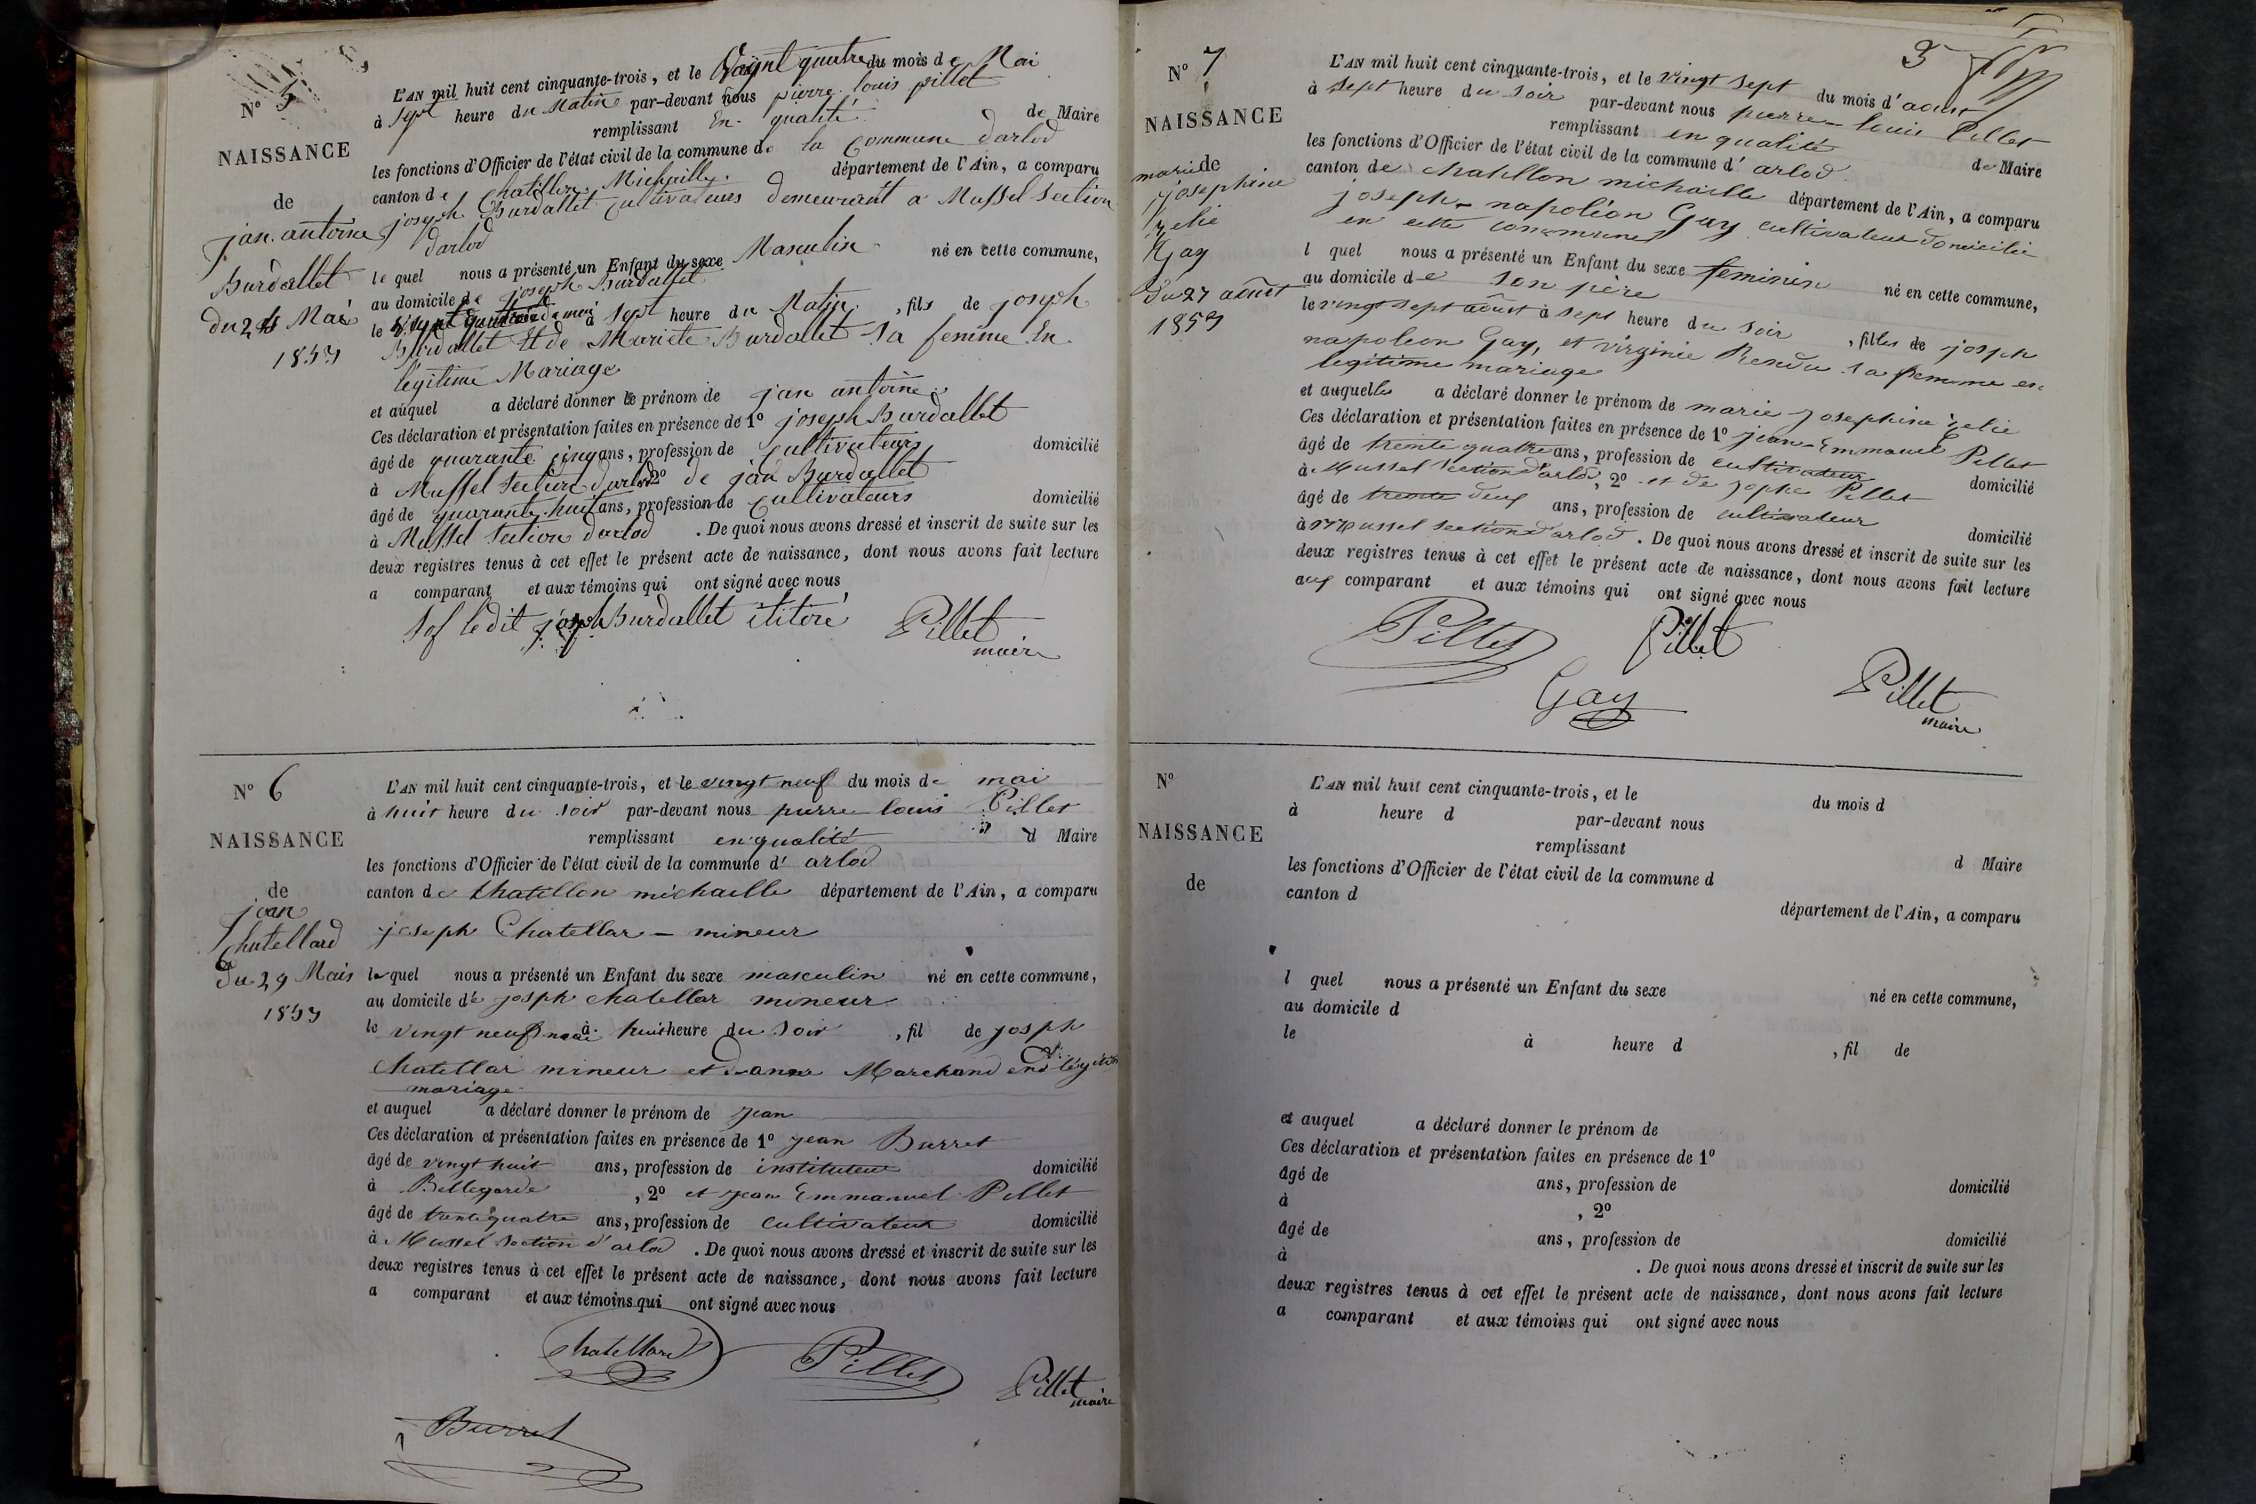 N° 5
NAISSANCE
de
jan antoine
Burdallet
du 24 Mai
1853
L'AN mil huit cent cinquante-trois, et le Vaingt quatre du mois de Mai
à sept heure du Matin par-devant nous pierre louis pillet
remplissant En qualité de Maire
les fonctions d'Officier de l'état civil de la commune de la Commune darlod
canton de Chatillon Michaille département de l'Ain, a comparu
joseph Burdallet Cultivateurs demeurant a Mussel Section
darlod
le quel nous a présenté un Enfant du sexe Masculin né en cette commune,
au domicile de joseph Burdallet
le à sept heure du Matin, fils de joseph
Burdallet Et de Mariete Burdallet Sa femme En
légitime Mariage
et auquel a déclaré donner le prénom de jan antoine
Ces déclaration et présentation faites en présence de 1° joseph Burdallet
âgé de quarante cinq ans, profession de Cultivateurs domicilié
à Mussel Section darlod 2° de jan Burdallet
âgé de quarante huit ans, profession de Cultivateurs domicilié
à Mussel Section darlod. De quoi nous avons dressé et inscrit de suite sur les
deux registres tenus à cet effet le présent acte de naissance, dont nous avons fait lecture
a comparant et aux témoins qui ont signé avec nous
ledit joseph Burdallet Pillet
maire
N° 6
NAISSANCE
de
jean
Chatellard
du 29 Mais
1853
L'AN mil huit cent cinquante-trois, et le vingt neuf du mois de mai
à huit heure du soir par-devant nous pierre louis Pillet
remplissant en qualité d Maire
les fonctions d'Officier de l'état civil de la commune d'arlod
canton de Chatillon michaille département de l'Ain, a comparu
joseph Chatellar - mineur
le quel nous a présenté un Enfant du sexe masculin né en cette commune,
au domicile de josph chatellar mineur
le vingt neuf mai à huit heure du soir, fil de josph
chatellar mineur et d'anne Marchand en légitime
mariage
et auquel a déclaré donner le prénom de jean
Ces déclaration et présentation faites en présence de 1° jean Burret
âgé de vingt huit ans, profession de instituteur domicilié
à Bellegarde, 2° et jean Emmanuel Pillet
âgé de trente quatre ans, profession de cultivateur domicilié
à Mussel section d'arlod. De quoi nous avons dressé et inscrit de suite sur les
deux registres tenus à cet effet le présent acte de naissance, dont nous avons fait lecture
a comparant et aux témoins qui ont signé avec nous
Chatellard Pillet Pillet
maire
Burret
3
N° 7
NAISSANCE
de
marie
josephine
zelie
Gay
du 27 août
1853
L'AN mil huit cent cinquante-trois, et le vingt sept du mois d'aoust
à sept heure du soir par-devant nous pierre louis Pillet
remplissant en qualité de Maire
les fonctions d'Officier de l'état civil de la commune d'arlod
canton de chatillon michaille département de l'Ain, a comparu
joseph napoléon Gay cultivateur domicilié
en cette commune
l quel nous a présenté un Enfant du sexe feminin né en cette commune,
au domicile de son père
le vingt sept août à sept heure du soir, filles de josph
napoleon Gay, et virginie Rendu sa femme en
legitime mariage
et auquelle a déclaré donner le prénom de marie josephine zelie
Ces déclaration et présentation faites en présence de 1° jean Emmanuel Pillet
âgé de trente quatre ans, profession de cultivateur domicilié
à Mussel section d'arlod, 2° et de josphe Pillet
âgé de trente deux ans, profession de cultivateur domicilié
à Mussel section d'arlod. De quoi nous avons dressé et inscrit de suite sur les
deux registres tenus à cet effet le présent acte de naissance, dont nous avons fait lecture
aux comparant et aux témoins qui ont signé avec nous
Pillet Pillet
Gay Pillet
maire
N°
NAISSANCE
de
L'AN mil huit cent cinquante-trois, et le du mois d
à heure d par-devant nous
remplissant d Maire
les fonctions d'Officier de l'état civil de la commune d
canton d département de l'Ain, a comparu
l quel nous a présenté un Enfant du sexe né en cette commune,
au domicile d
le à heure d, fil de
et auquel a déclaré donner le prénom de
Ces déclaration et présentation faites en présence de 1°
âgé de ans, profession de domicilié
à, 2°
âgé de ans, profession de domicilié
à. De quoi nous avons dressé et inscrit de suite sur les
deux registres tenus à cet effet le présent acte de naissance, dont nous avons fait lecture
a comparant et aux témoins qui ont signé avec nous